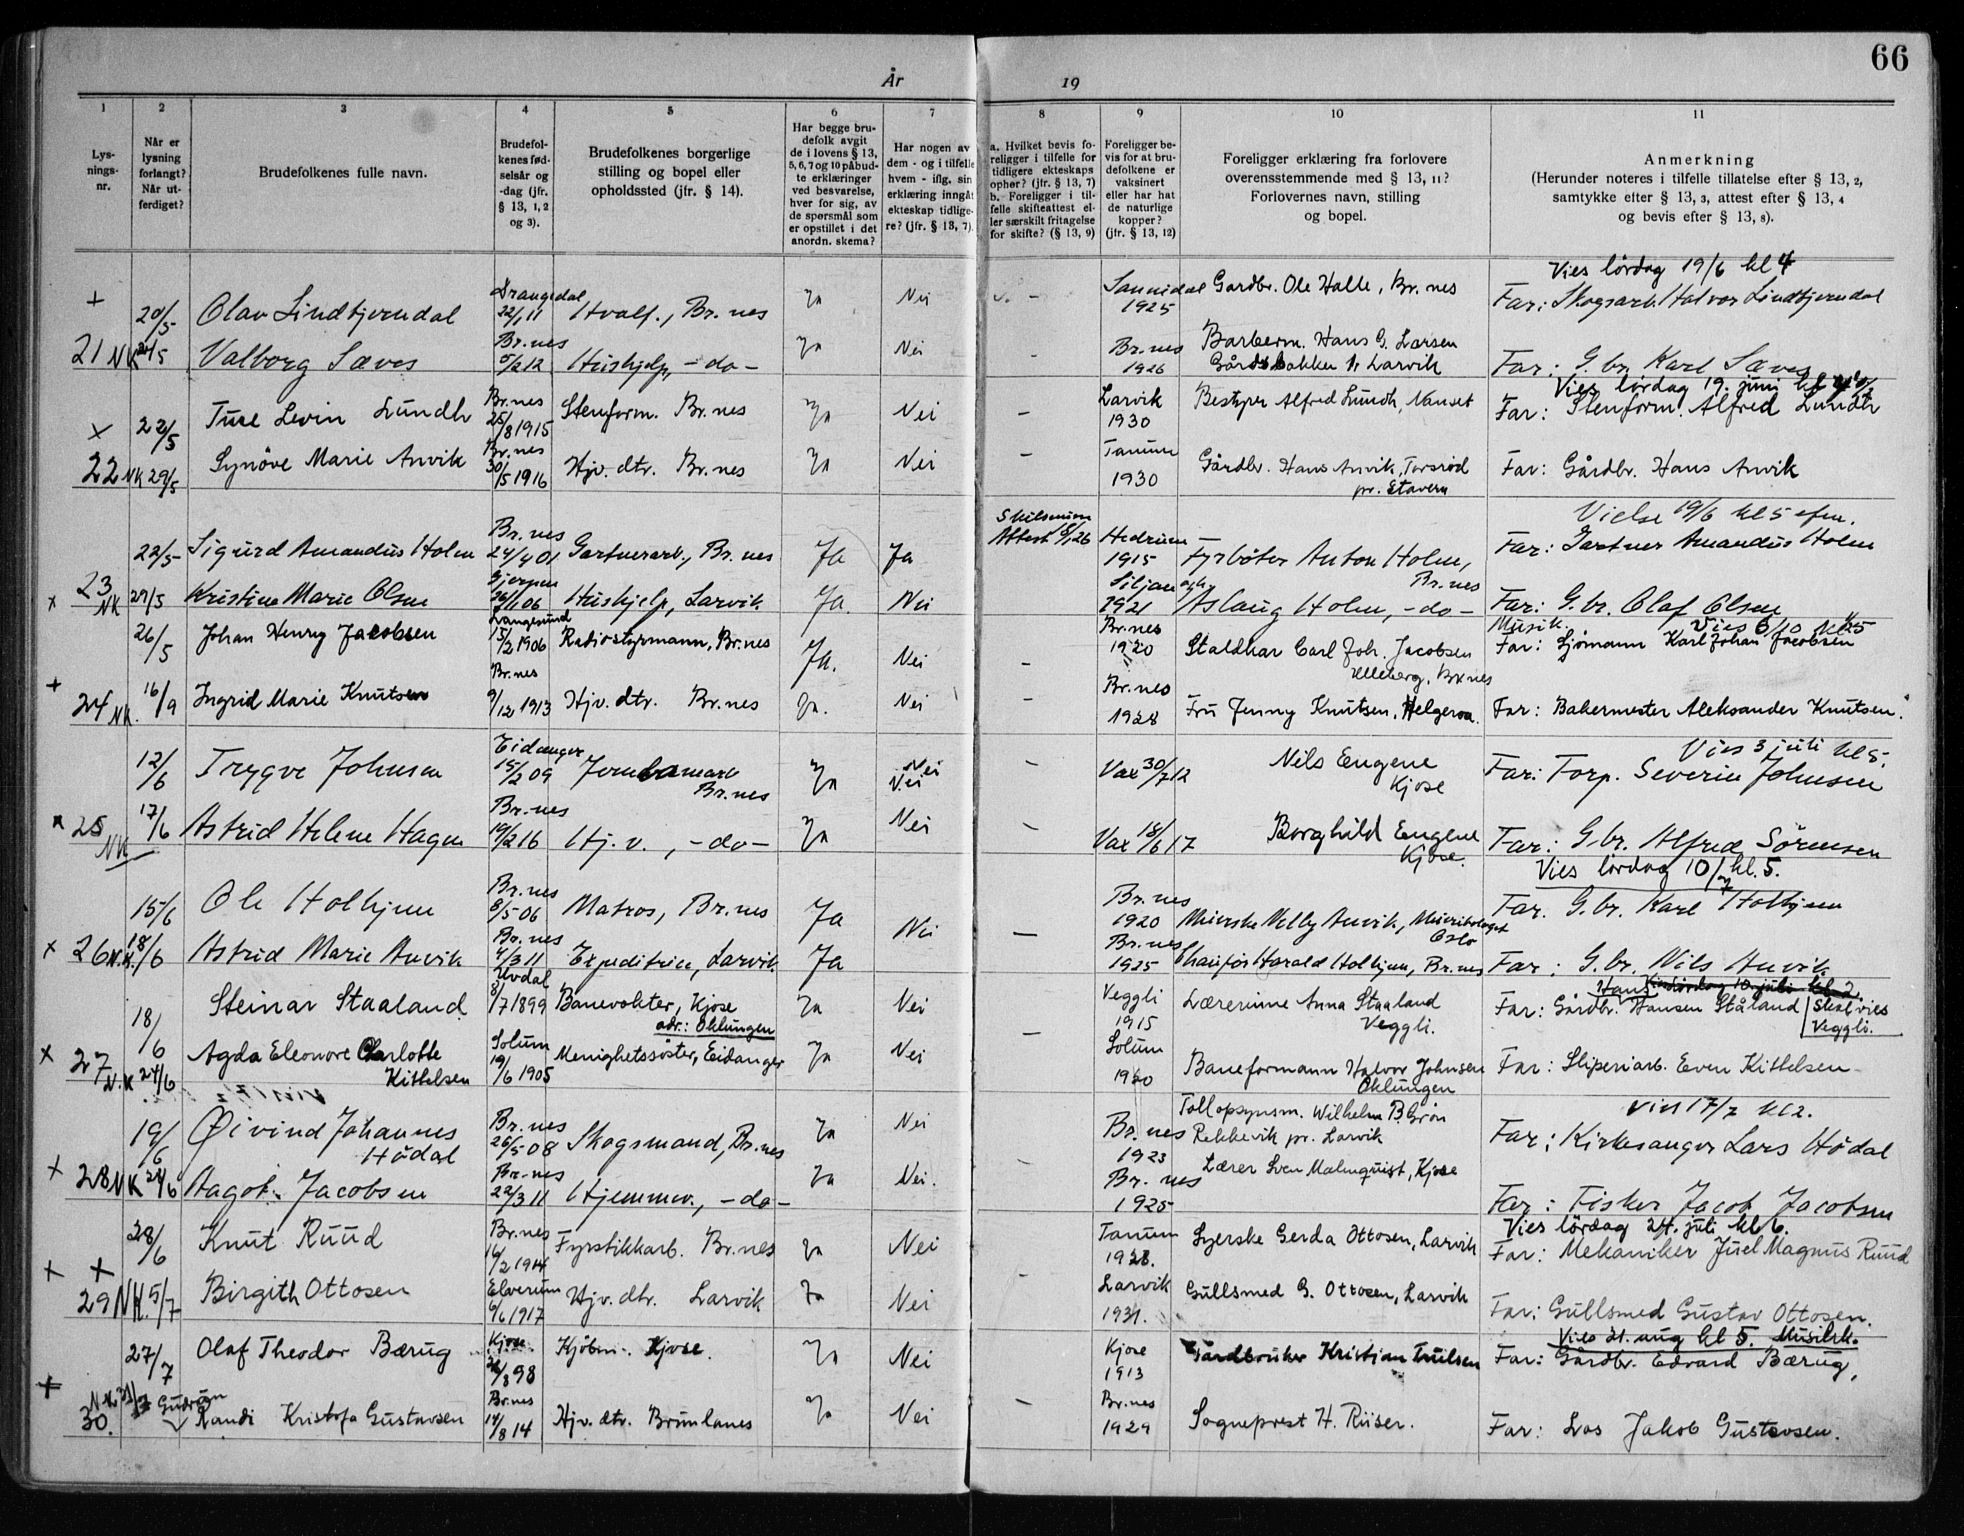 66
År 19
1 2 3 4 5 6 7 8 9 10 11
Lys-
nings-
nr.
Når er
lysning
forlangt?
Når ut-
ferdiget?
Brudefolkenes fulle navn.
Brudefol-
kenes fød-
selsår og
-dag (jfr.
§ 13, 1, 2
og 3).
Brudefolkenes borgerlige
stilling og bopel eller
opholdssted (jfr. § 14).
Har begge bru-
defolk avgit
de i lovens § 13,
5, 6, 7 og 10 påbud-
te erklæringer
ved besvarelse,
hver for sig, av
de spørsmål som
er opstillet i det
anordn. skema?
Har nogen av
dem - og i tilfelle
hvem - iflg. sin
erklæring inngått
ekteskap tidlige-
re? (jfr. § 13, 7).
a. Hvilket bevis fo-
religger i tilfelle for
tidligere ekteskaps
ophør? (jfr. § 13, 7)
b. Foreligger i til-
felle skifteattest el-
ler særskilt fritagelse
for skifte? (§ 13, 9)
Foreligger be-
vis for at bru-
defolkene er
vaksinert
eller har hat
de naturlige
kopper?
(jfr. § 13, 12)
Foreligger erklæring fra forlovere
overensstemmende med § 13, 11?
Forlovernes navn, stilling
og bopel.
Anmerkning
(Herunder noteres i tilfelle tillatelse efter § 13, 2,
samtykke efter § 13, 3, attest efter § 13, 4
og bevis efter § 13, 8).
Vies lördag 19/6 kl 4
+ 20/5 Olav Lindtjerndal Drangedal 22/1 11 Hvalf., Br.nes Ja Nei - Sannidal 1925 Gardbr. Ole Halle, Br.nes Far: Skogsarb. Halvor Lindtjerndal
21 NK 24/5 Valborg Sæves Br.nes 5/2 12 Hushjelp, -do- Ja Nei - Br.nes 1926 Barberm. Hans G. Larsen
Larvik Far: G.br. Karl Sæves
Vies lördag 19. juni kl
x 22/5 Ture Levin Lundh Br.nes 25/8 1915 Stenform. Br.nes Ja Nei - Larvik 1930 Bestyrer Alfred Lundh, Nanset Far: Stenform. Alfred Lundh
22 NK 29/5 Synöve Marie Anvik Br.nes 30/5 1916 Hjv. dtr. Br.nes Ja Nei - Tanum 1930 Gårdbr. Hans Anvik, Torsrød
pr. Stavern Far: Gårdbr. Hans Anvik
Vielse 19/6 kl 5 efm.
22/5 Sigurd Amandus Holm Br.nes 24/4 01 Gartnerarb., Br.nes Ja Ja Skilsmiss Attest Hedrum 1915 Fyrböter Anton Holm,
Br.nes Far: Gartner Amandus Holm
x 23 NK 27/5 Kristine Marie Olsen Gjerpen 06 Hushjelp, Larvik Ja Nei Siljan 1921 og Aslaug Holm, -do- Far: G.br. Olaf Olsen
Musik. Vies 6/10 kl 5
26/5 Johan Henry Jacobsen Langesund 15/2 1906 Radiostyrmann, Br.nes Ja. Nei - Br.nes 1920 Staldkar Carl Joh. Jacobsen
Ulleberg, Br.nes Far: Sjømann Karl Johan Jacobsen
+ 24 NK. 16/9 Ingrid Marie Knutsen Br.nes 9/12 1913 Hjv. dtr. Br.nes Ja. Nei - Br.nes 1928 Fru Jenny Knutsen, Helgeroa. Far: Bakermester Aleksander Knutsen.
Vies 3 juli kl 5.
12/6 Trygve Johnsen Eidanger 15/2 09 Jernbanearb
Br.nes Ja Nei Nei - Vax 30/7 12 Nils Eugene
Kjose Far: Forp. Severin Johnsen
x 25 NK 17/6 Astrid Helene Hagen Br.nes 19/2 16 Hj. v., -do- Ja Nei - Vax 18/6 17 Borghild Eugene
Kjose. Far: G.br. Alfred Sørensen
Vies lördag 10/7 kl. 5.
15/6 Ole Holhjem Br.nes 8/5-06 Matros, Br.nes Ja Nei - Br.nes 1920 Nelly Anvik,
Oslo Far. G.br. Karl Holhjem
x 26 N.K. 18/6 Astrid Marie Anvik Br.nes 4/3 11 Expeditrice, Larvik Ja Br.nes 1925 Chaufför Harald Holhjem, Br.nes Far: G.br. Nils Anvik
10. juli kl 2.
18/6 Steinar Staaland Uvdal 8/7 1899 Banevokter, Kjose
adr.: Oklungen Ja Nei - Veggli 1915 Lærerinne Anna Staaland
Veggli. Far: Gårdbr. Hans Hansen Ståland Skal vies
Veggli.
x 27 N.K 24/6 Agda Eleonore Charlotte
Kittelsen Solum 19/6 1905 Menighetssöster, Eidanger Ja Nei Solum 1920 Baneformann Halvor Johnsen
Oklungen Far: Sliperiarb. Even Kittelsen
Vies 17/7 kl 2.
19/6 Øivind Johannes
Hödal Br.nes 26/5-08 Skogsmand, Br.nes Ja Nei - Br.nes 1923 Tollopsynsm. Wilhelm B. Grön
Rekkevik pr. Larvik Far: Kirkesanger Lars Hödal
+ 28 NK 24/6 Aagot Jacobsen Br.nes 22/3 11 Hjemmev., -do- Ja Nei. Br.nes 1925 Lærer Sven Malmquist, Kjose Far: Fisker Jacob Jacobsen
Vies lördag 24. juli kl 6.
28/6 Knut Ruud Br.nes 16/2 1914 Fyrstikkarb. Br.nes Ja Nei - Tanum 1928. Syerske Gerda Ottosen, Larvik Far: Mekaniker Juel Magnus Ruud
+ + 29 NK. 5/7 Birgith Ottosen Elverum 6/6 1917 Hjv. dtr. Larvik Ja Nei Larvik 1931. Gullsmed G. Ottosen, Larvik Far: Gullsmed Gustav Ottosen.
Vies 21. aug kl 5. Musikk.
27/7 Olaf Theodor Bærug Kjose 98 Kjöbm. Kjose. Ja Nei Kjose 1913 Gårdbruker Kristian Far: Gårdbr. Edvard Bærug,
+ N.K. 30. 31/7 Gudrun
Randi Kristofa Gustavsen Br.nes 14/8 14 Hjv. dtr. Brunlanes Ja Nei - Br.nes 1929 Sogneprest H. Riiser. Far: Los Jakob Gustavsen.